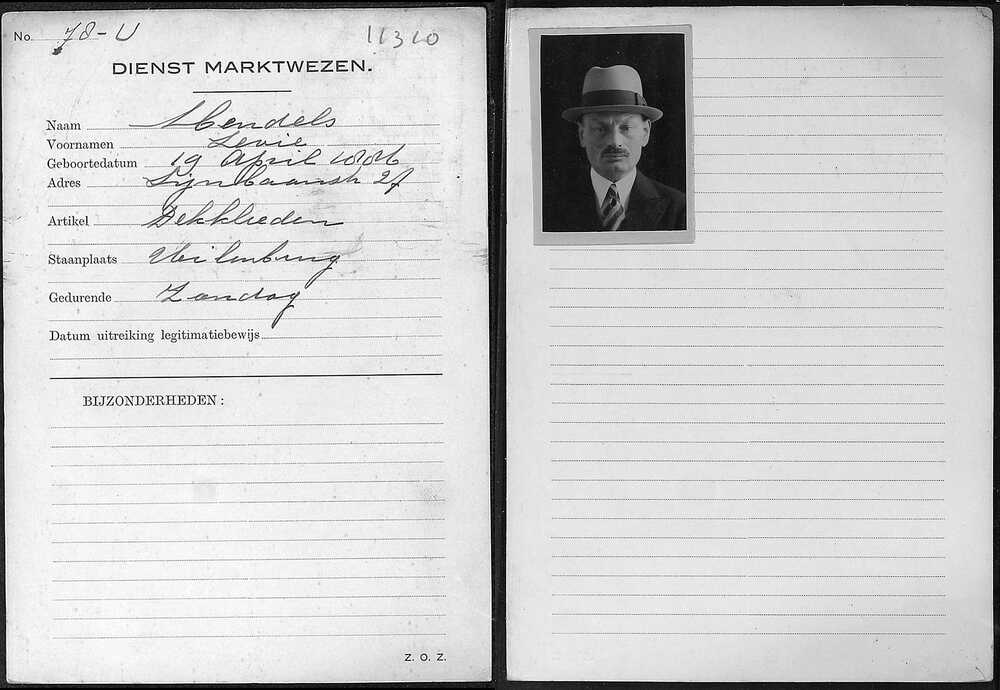 No. 78-U 11310
DIENST MARKTWEZEN.
Naam Mendels
Voornamen Levie
Geboortedatum 19 April
Adres Lijnbaanstr 27
Artikel Dekkleeden
Staanplaats Uilenburg
Gedurende Zondag
Datum uitreiking legitimatiebewijs
BIJZONDERHEDEN:
Z. O. Z.